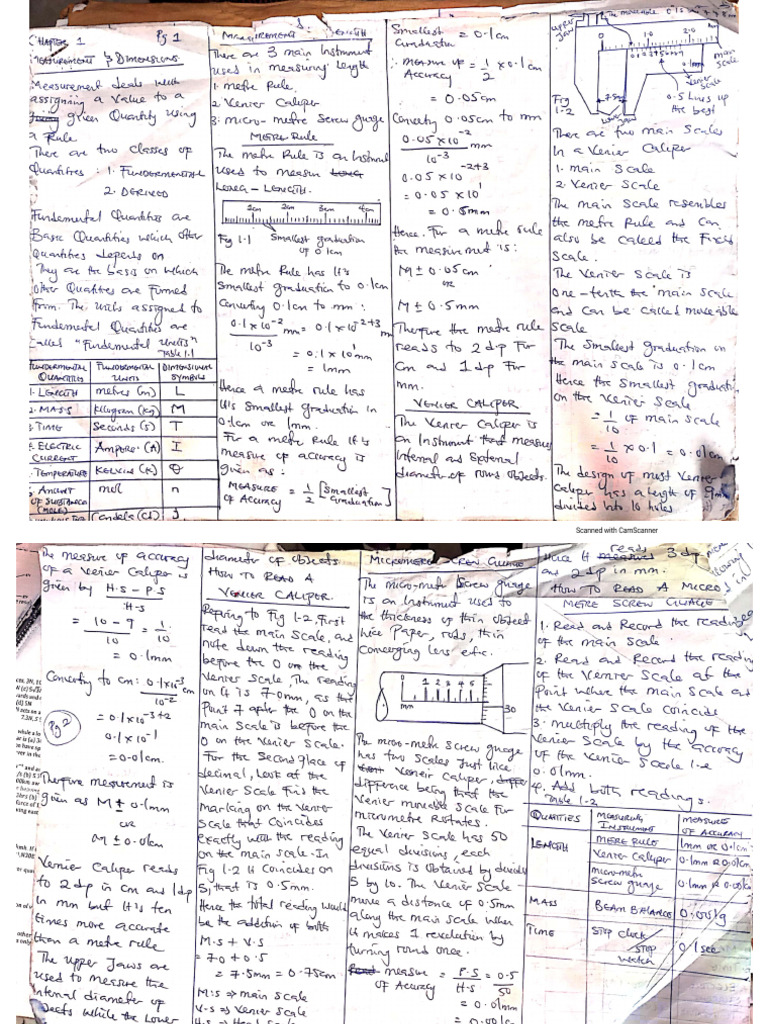 CHAPTER 1 Pg 1
MEASUREMENT & DIMENSIONS
Measurement deals with
assigning a value to a
given Quantity using
a Rule
There are two classes of
Quantities : 1. FUNDEMENTAL
2. DERIVED
Fundemental Quantities are
Basic Quantities which other
Quantities depends on
They are the basis on which
other Quantities are Formed
From. The units assigned to
Fundemental Quantities are
called "Fundemental units"
Table 1.1
FUNDEMENTAL QUANTITIES FUNDEMENTAL UNITS DIMENSIONAL SYMBOLS
1. LENGTH metres (m) L
2. MASS Kilogram (Kg) M
3. TIME Seconds (s) T
ELECTRIC CURRENT Ampere (A) I
TEMPERATURE KELVIN (K) θ
AMOUNT OF SUBSTANCE (MOLE) mol n
Candela (Cd) J
MEASUREMENT OF LENGTH
There are 3 main Instrument
used in measuring length
1. metre Rule.
2. Venier Caliper
3. micro-metre Screw guage
METRE RULE
The metre Rule is an Instrument
used to measure
LENGH - LENGTH.
1cm 2cm 3cm 4cm
Fig 1.1 Smallest graduation
of 0.1cm
The metre Rule has its
Smallest graduation to 0.1cm
Converting 0.1cm to mm:
0.1 x 10⁻² mm = 0.1 x 10⁻²⁺³ mm
10⁻³
= 0.1 x 10¹ mm
= 1mm
Hence a metre rule has
its smallest graduation in
0.1cm or 1mm.
For a metre Rule its
measure of accuracy is
given as:
MEASURE OF ACCURACY = 1/2 [Smallest Graduation]
Smallest Graduation = 0.1cm
∴ MEASURE OF Accuracy = 1/2 x 0.1cm
= 0.05cm
Converting 0.05cm to mm
0.05 x 10⁻² mm
10⁻³
0.05 x 10⁻²⁺³
= 0.05 x 10¹
= 0.5mm
Hence. For a metre rule
the measurement is:
M ± 0.05cm
or
M ± 0.5mm
Therefore the metre rule
reads to 2dp For
cm and 1dp For
mm.
VENIER CALIPER
The Venier Caliper is
an Instrument that measures
Internal and External
diameter of round objects.
Upper Jaw
0 1.0 2.0
main scale
0.1mm
Venier Scale
7.5mm
0.5 lines up
the best
Fig 1-2
There are two main Scales
In a Venier Caliper
1. main Scale
2. Venier Scale
The main Scale resembles
the metre Rule and can
also be called the Fixed
Scale.
The Venier Scale is
One-tenth the main Scale
and can be called moveable
Scale
The Smallest Graduation on
the main Scale is 0.1cm
Hence the Smallest graduation
on the Venier Scale
= 1/10 of main Scale
= 1/10 x 0.1 = 0.01cm
The design of most Venier
Caliper has a length of 9mm
divided into 10 holes
Scanned with CamScanner
The measure of accuracy
of a Venier Caliper is
given by H.S - P.S
H.S
= 10 - 9 = 1
10 10
= 0.1mm
Converting to cm: 0.1x10⁻³ cm
10⁻²
= 0.1 x 10⁻³⁺²
0.1 x 10⁻¹
= 0.01cm.
Pg 2
Therefore measurement is
given as M ± 0.1mm
or
M ± 0.01cm
Vernier Caliper reads
to 2dp in cm and 1dp
in mm but it's ten
times more accurate
than a metre rule
The Upper Jaws are
used to measure the
internal diameter of
objects while the lower
diameter of objects.
HOW TO READ A
VENIER CALIPER.
Refering to Fig 1-2, First
read the main Scale, and
note down the reading
before the 0 on the
Venier Scale, The reading
on it is 7.0mm, as the
Point 7 after the 0 on the
main Scale is before the
0 on the Venier Scale.
For the Second place of
decimal, look at the
Venier Scale Find the
marking on the Venier
Scale that Coincides
exactly with the reading
on the main Scale. In
Fig 1-2 it Coincides on
5, that is 0.5mm.
Hence the total reading would
be the addition of both
M.S + V.S
= 7.0 + 0.5
= 7.5mm = 0.75cm
M.S => main Scale
V.S => Venier Scale
MICROMETRE SCREW GUAGE
The micro-meter Screw guage
is an Instrument used to
the thickness of thin object
like Paper, rods, thin
Converging lens e.t.c.
0 1 2 3 4 5
mm
30
The micro-metre Screw guage
has two Scales Just like
Venier Caliper,
difference being that the
Venier movable Scale for
micrometre Rotates.
The Venier Scale has 50
equal divisions, each
divisions is obtained by dividing
5 by 10. The Venier Scale
move a distance of 0.5mm
along the main Scale when
it makes 1 revolution by
turning round once.
measure OF ACCURACY = P.S = 0.5
H.S 50
= 0.01mm
= 0.001cm
Hence it reads 3dp
and 2dp in mm.
HOW TO READ A MICRO
METRE SCREW GUAGE
1. Read and Record the reading
of the main Scale.
2. Read and Record the reading
of the Venier Scale at the
Point where the main Scale and
the Venier Scale Coincide
3. multiply the reading of the
Venier Scale by the accuracy
of the Venier Scale i.e
0.01mm.
4. Add both readings.
Table 1-2
QUANTITIES MEASURING INSTRUMENT MEASURE OF ACCURACY
LENGTH METRE RULE 1mm or 0.1cm
Venier Caliper 0.1mm or 0.01cm
micro-metre Screw guage 0.1mm or 0.001cm
MASS BEAM BALANCE 0.001g
TIME Stop clock, STOP watch 0.1sec